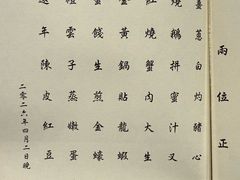 兩位正
蔥白灼豬心
鵝拼蜜汁叉
燒蟹肉大生
黃鍋貼龍蝦
生煎金蠔
雲子蒸嫩蛋
遠年陳皮紅豆
二零二六年四月二日晚